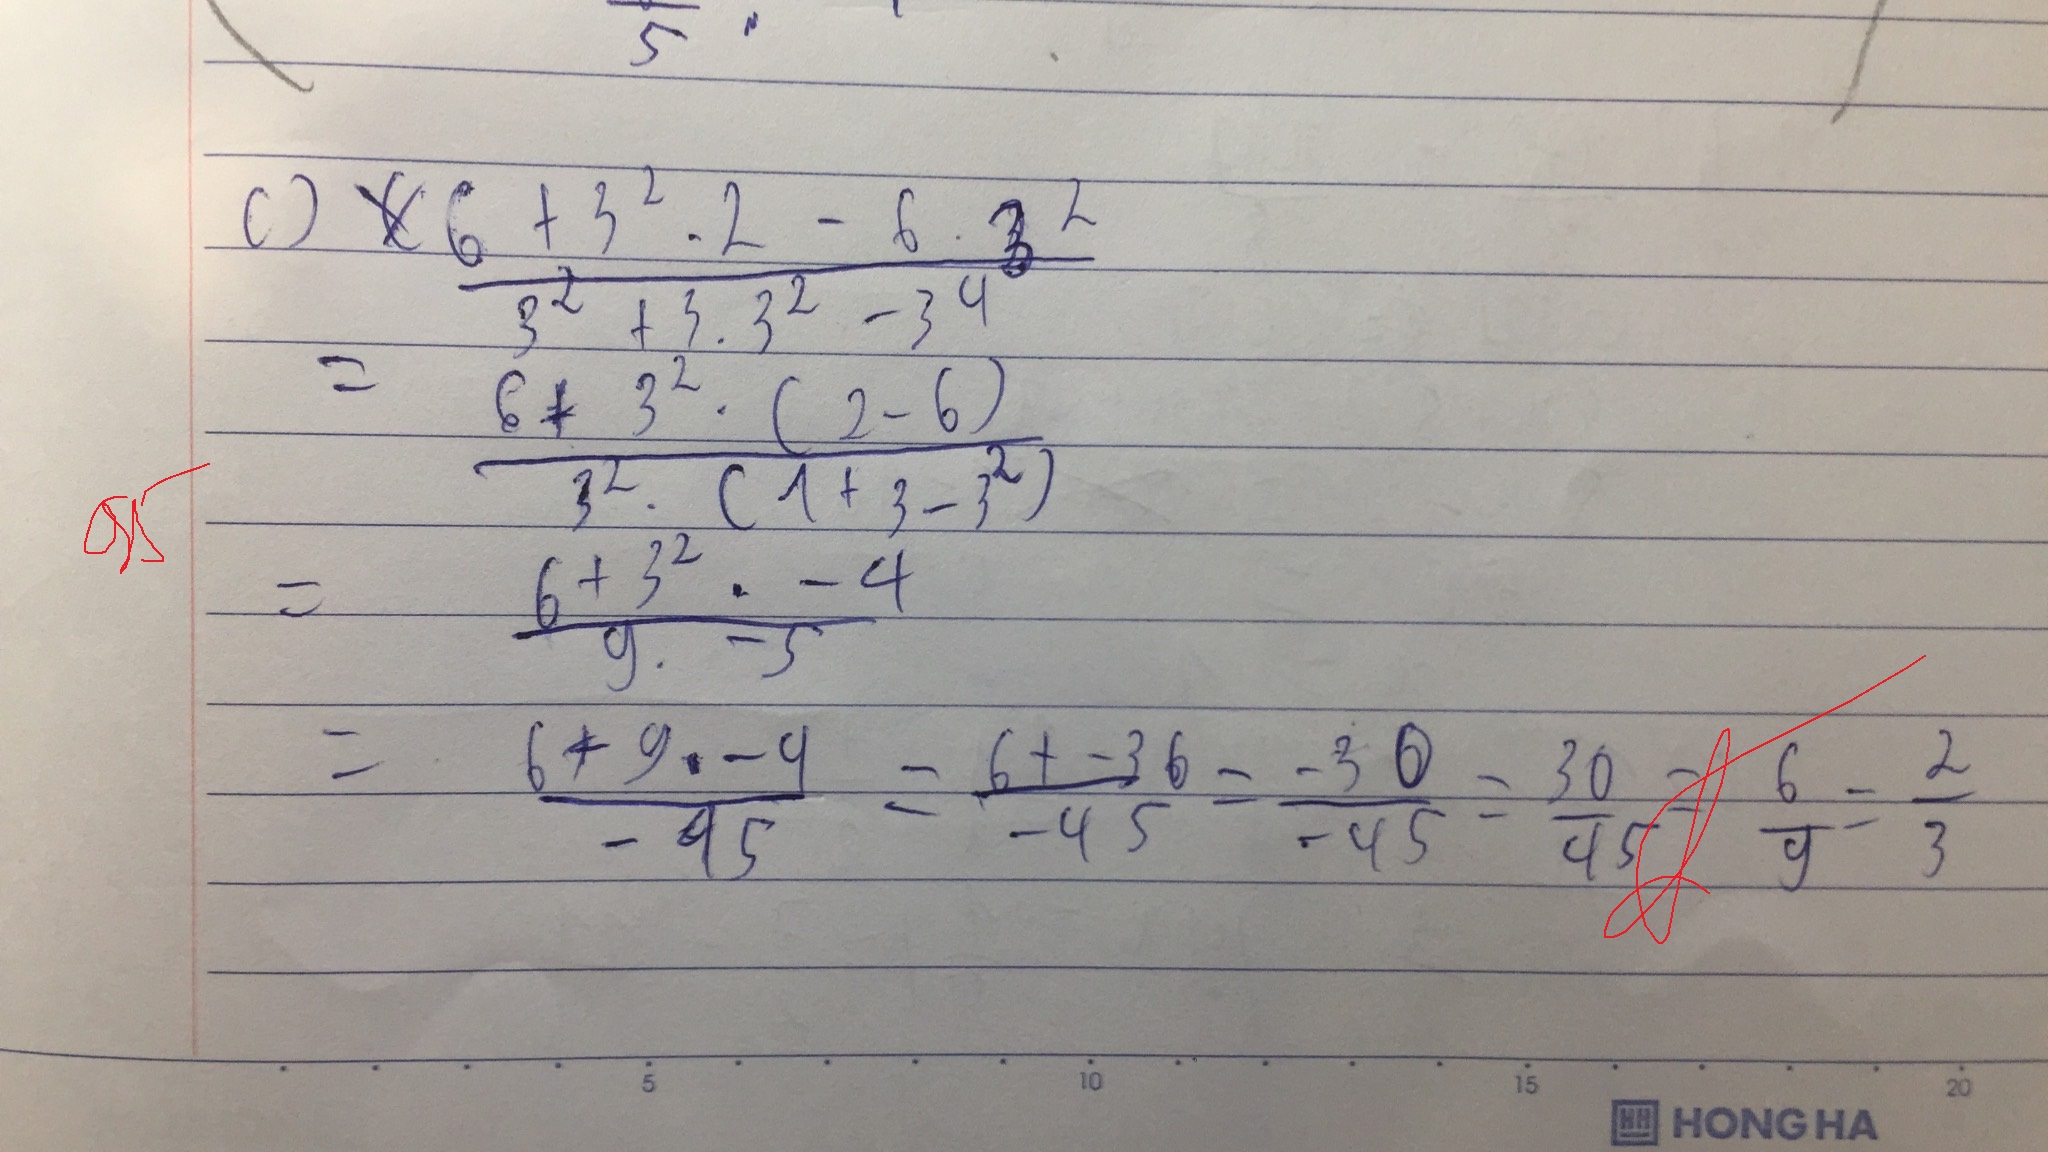 5
c) 6 + 3² . 2 - 6 . 3²
3² + 3 . 3² - 3⁴
= 6 + 3² . (2 - 6)
3² . (1 + 3 - 3²)
= 6 + 3² . -4
9 . -5
= 6 + 9 . -4 = 6 + -36 = -30 = 30 = 6 = 2
-45 -45 -45 45 9 3
0,5
5 10 15 20
HH HONG HA